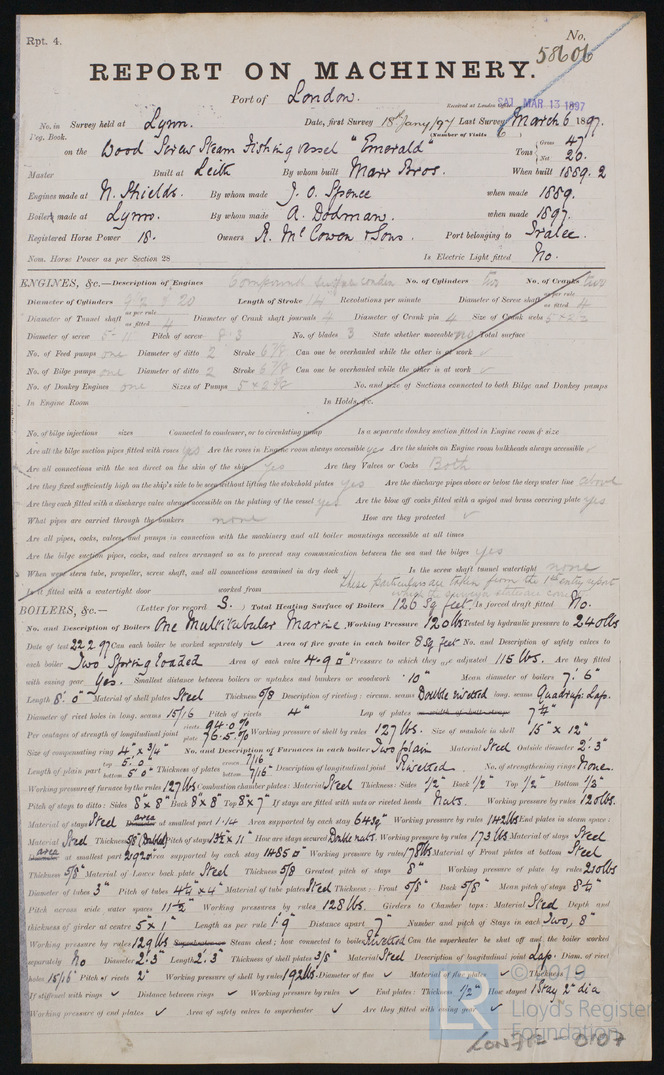 Rpt. 4.
No. 58606
REPORT ON MACHINERY.
Port of London.
Received at London Office SAT. MAR 13 1897
No. in Reg. Book. Survey held at Lynn. Date, first Survey 18th Jany/97 Last Survey March 6 1897.
(Number of Visits 6)
on the Wood Screw Steam Fishing vessel "Emerald" Tons Gross 47 Net 20.
Master Built at Leith By whom built Marr Bros. When built 1889. 2
Engines made at N. Shields. By whom made J. O. Spence when made 1889.
Boilers made at Lynn. By whom made A. Dodman. when made 1897.
Registered Horse Power 18. Owners R. McCowen & Sons. Port belonging to Tralee.
Nom. Horse Power as per Section 28 Is Electric Light fitted No.
ENGINES, &c.—Description of Engines Compound surface conden No. of Cylinders two No. of Cranks two
Diameter of Cylinders Length of Stroke 14 Revolutions per minute Diameter of Screw shaft as per rule as fitted 4
Diameter of Tunnel shaft as per rule as fitted 4 Diameter of Crank shaft journals 4 Diameter of Crank pin 4 Size of Crank webs
Diameter of screw Pitch of screw 8.3 No. of blades 3 State whether moveable no Total surface
No. of Feed pumps one Diameter of ditto 2 Stroke 6 7/8 Can one be overhauled while the other is at work ✓
No. of Bilge pumps one Diameter of ditto 2 Stroke 6 7/8 Can one be overhauled while the other is at work ✓
No. of Donkey Engines one Sizes of Pumps No. and size of Suctions connected to both Bilge and Donkey pumps
In Engine Room In Holds, &c.
No. of bilge injections sizes Connected to condenser, or to circulating pump Is a separate donkey suction fitted in Engine room & size
Are all the bilge suction pipes fitted with roses yes Are the roses in Engine room always accessible yes Are the sluices on Engine room bulkheads always accessible ✓
Are all connections with the sea direct on the skin of the ship yes Are they Valves or Cocks Both
Are they fixed sufficiently high on the ship's side to be seen without lifting the stokehold plates yes Are the discharge pipes above or below the deep water line above
Are they each fitted with a discharge valve always accessible on the plating of the vessel yes Are the blow off cocks fitted with a spigot and brass covering plate yes
What pipes are carried through the bunkers none How are they protected ✓
Are all pipes, cocks, valves, and pumps in connection with the machinery and all boiler mountings accessible at all times
Are the bilge suction pipes, cocks, and valves arranged so as to prevent any communication between the sea and the bilges yes
When were stern tube, propeller, screw shaft, and all connections examined in dry dock Is the screw shaft tunnel watertight none
Is it fitted with a watertight door worked from
These particulars are taken from the 1st entry report
BOILERS, &c.— (Letter for record S.) Total Heating Surface of Boilers 126 Sq feet. Is forced draft fitted No.
No. and Description of Boilers One Multitubular Marine. Working Pressure 120 lbs Tested by hydraulic pressure to 240 lbs
Date of test 22.2.97 Can each boiler be worked separately ✓ Area of fire grate in each boiler 8 Sq feet No. and Description of safety valves to
each boiler Two Spring loaded Area of each valve 4.9 □" Pressure to which they are adjusted 115 lbs. Are they fitted
with easing gear Yes. Smallest distance between boilers or uptakes and bunkers or woodwork 10" Mean diameter of boilers 7'.6"
Length 8'.0" Material of shell plates Steel Thickness 5/8 Description of riveting: circum. seams Double riveted long. seams Quadrup: Lap.
Diameter of rivet holes in long. seams 15/16 Pitch of rivets 4" Lap of plates or width of butt straps 7 3/4"
Per centages of strength of longitudinal joint rivets 94.0% plate 76.5% Working pressure of shell by rules 127 lbs. Size of manhole in shell 15" x 12"
Size of compensating ring 4" x 3/4" No. and Description of Furnaces in each boiler Two plain Material Steel Outside diameter 2'.3"
Length of plain part top 5'.0" bottom 5'.0" Thickness of plates crown 7/16 bottom 7/16" Description of longitudinal joint Rivetted No. of strengthening rings None.
Working pressure of furnace by the rules 127 lbs Combustion chamber plates: Material Steel Thickness: Sides 1/2" Back 1/2" Top 1/2" Bottom 1/2"
Pitch of stays to ditto: Sides 8" x 8" Back 8" x 8" Top 8" x 7" If stays are fitted with nuts or riveted heads Nuts. Working pressure by rules 120 lbs.
Material of stays Steel area at smallest part 1.14 Area supported by each stay 64 sq" Working pressure by rules 142 lbs End plates in steam space:
Material Steel Thickness 5/8 (Doubled) Pitch of stays 13 1/2 x 11" How are stays secured Double nuts. Working pressure by rules 173 lbs Material of stays Steel
area at smallest part Area supported by each stay 148.5 □" Working pressure by rules 178 lbs Material of Front plates at bottom Steel
Thickness 5/8" Material of Lower back plate Steel Thickness 5/8 Greatest pitch of stays 8" Working pressure of plate by rules 230 lbs
Diameter of tubes 3" Pitch of tubes 4 1/4" x 4" Material of tube plates Steel Thickness: Front 5/8" Back 5/8" Mean pitch of stays 8 1/4
Pitch across wide water spaces 11 1/2" Working pressures by rules 128 lbs. Girders to Chamber tops: Material Steel Depth and
thickness of girder at centre 5" x 1" Length as per rule 1'.9" Distance apart 7" Number and pitch of Stays in each Two, 8"
Working pressure by rules 129 lbs Superheater or Steam chest; how connected to boiler Rivetted Can the superheater be shut off and the boiler worked
separately No Diameter 2'.3" Length 2'.3" Thickness of shell plates 3/8" Material Steel Description of longitudinal joint Lap. Diam. of rivet
holes 15/16" Pitch of rivets 2" Working pressure of shell by rules 192 lbs. Diameter of flue ✓ Material of flue plates Thickness
If stiffened with rings ✓ Distance between rings ✓ Working pressure by rules ✓ End plates: Thickness 1/2" How stayed 1 Stay 2" dia
Working pressure of end plates ✓ Area of safety valves to superheater ✓ Are they fitted with easing gear ✓
© 2019
LR Lloyd's Register
Foundation
LON752-0107